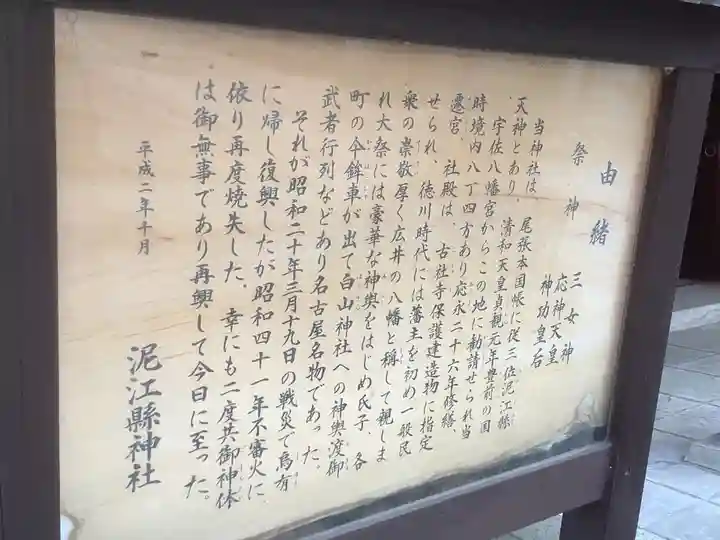 由緒
祭神 三女神
応神天皇
神功皇后
当神社は、尾張本国帳に従三位泥江縣
天神とあり、清和天皇貞観元年豊前の国
宇佐八幡宮からこの地に勧請せられ当
時境内八丁四方あり応永二十六年修繕、
遷宮、社殿は、古社寺保護建造物に指定
せられ、徳川時代には藩主を初め一般民
衆の崇敬厚く広井の八幡と称して親しま
れ大祭には豪華な神輿をはじめ氏子、各
町の傘鉾車が出て白山神社への神輿渡御
武者行列などあり名古屋名物であった。
それが昭和二十年三月十九日の戦災で烏有
に帰し復興したが昭和四十一年不審火に
依り再度焼失した。幸にも二度共御神体
は御無事であり再興して今日に至った。
平成二年十月
泥江縣神社